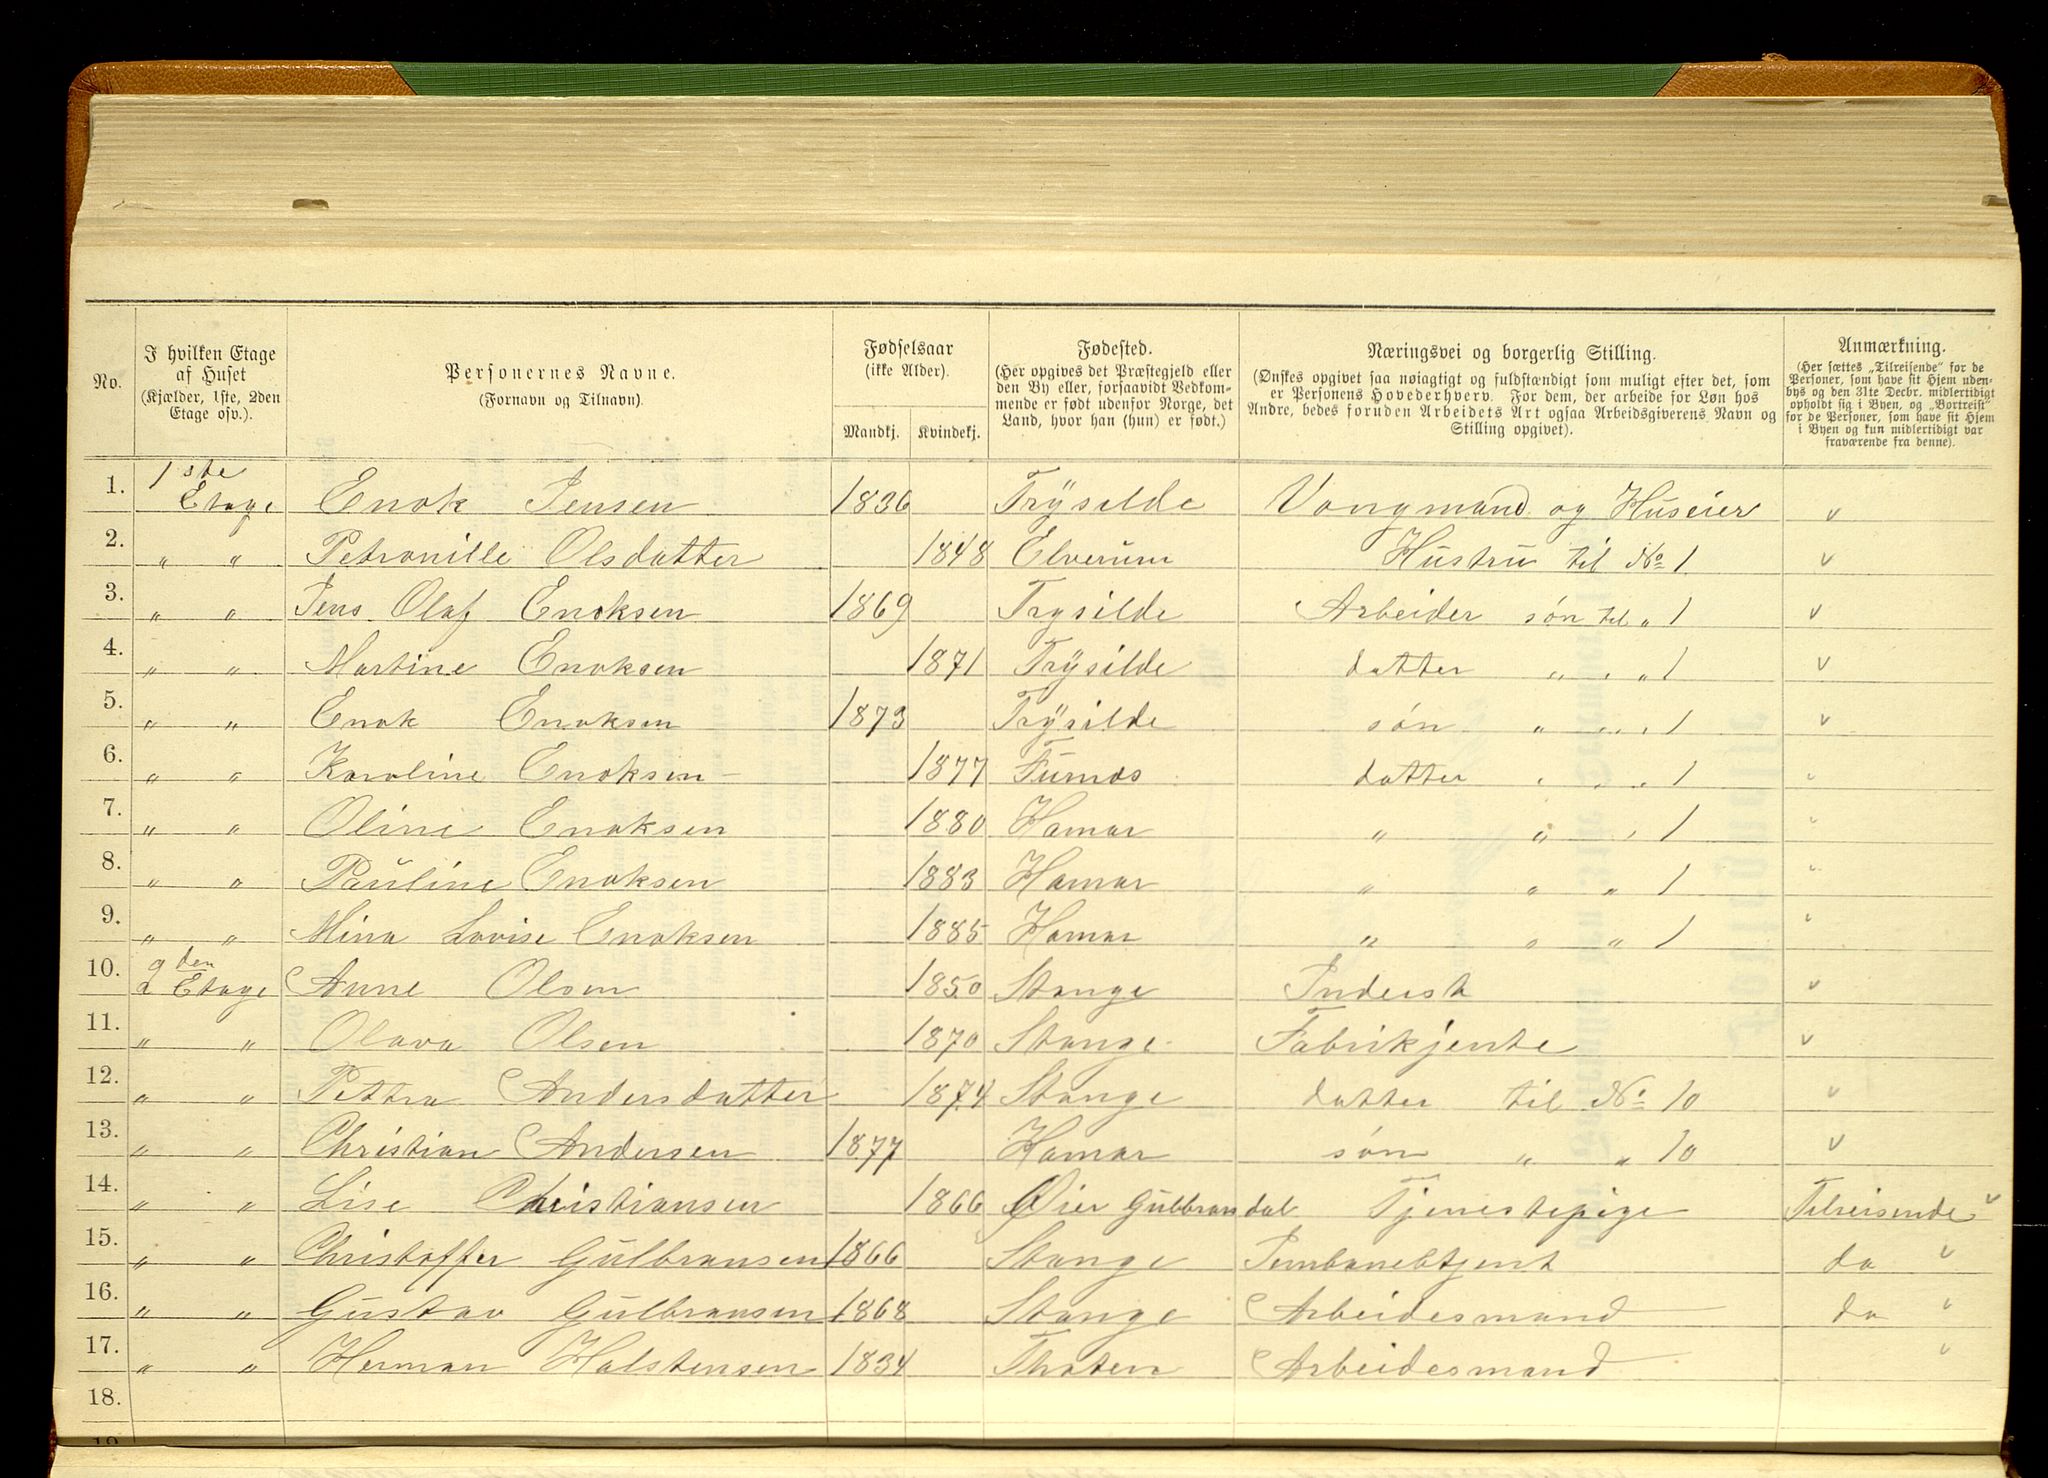 No. | I hvilken Etage af Huset (Kjælder, 1ste, 2den Etage osv.). | Personernes Navne. (Fornavn og Tilnavn). | Fødselsaar (ikke Alder). Mandkj. | Kvindekj. | Fødested. (Her opgives det Præstegjeld eller den By eller, forsaavidt Vedkommende er født udenfor Norge, det Land, hvor han (hun) er født.) | Næringsvei og borgerlig Stilling. (Ønskes opgivet saa nøiagtigt og fuldstændigt som muligt efter det, som er Personens Hovederhverv. For dem, der arbeide for Løn hos Andre, bedes foruden Arbeidets Art ogsaa Arbeidsgiverens Navn og Stilling opgivet). | Anmærkning. (Her sættes „Tilreisende" for de Personer, som have sit Hjem udenbys og den 31te Decbr. midlertidigt opholdt sig i Byen, og „Bortreist" for de Personer, som have sit Hjem i Byen og kun midlertidigt var fraværende fra denne).
1. 1ste Etage Enok Jensen 1836 Trysilde Vongmand og Huseier v
2. " " Petronille Olsdatter 1848 Elverum Hustru til No 1 v
3. " " Jens Olaf Enoksen 1869 Trysilde Arbeider søn til " 1 v
4. " " Martine Enoksen 1871 Trysilde datter " " " 1 v
5. " " Enok Enoksen 1873 Trysilde søn " " " 1 v
6. " " Karoline Enoksen 1877 Furnæs datter " " " 1 v
7. " " Oline Enoksen 1880 Hamar " " " 1 v
8. " " Pauline Enoksen 1883 Hamar " " " 1 v
9. " " Mina Lovise Enoksen 1885 Hamar " " " 1 v
10. 2den Etage Anne Olsen 1850 Stange Inderst v
11. " " Olava Olsen 1870 Stange Fabrikjente v
12. " " Pettra Andersdatter 1874 Stange datter til No 10 v
13. " " Christian Andersen 1877 Hamar søn " " 10 v
14. " " Lise Christiansen 1866 Øier Gulbransdal Tjenestepige Tilreisende v
15. " " Christoffer Gulbransen 1866 Stange Jernbanebtjent do v
16. " " Gustav Gulbransen 1868 Stange Arbeidesmand do v
17. " " Herman Halstensen 1834 Thoten Arbeidesmand v
18.
19.